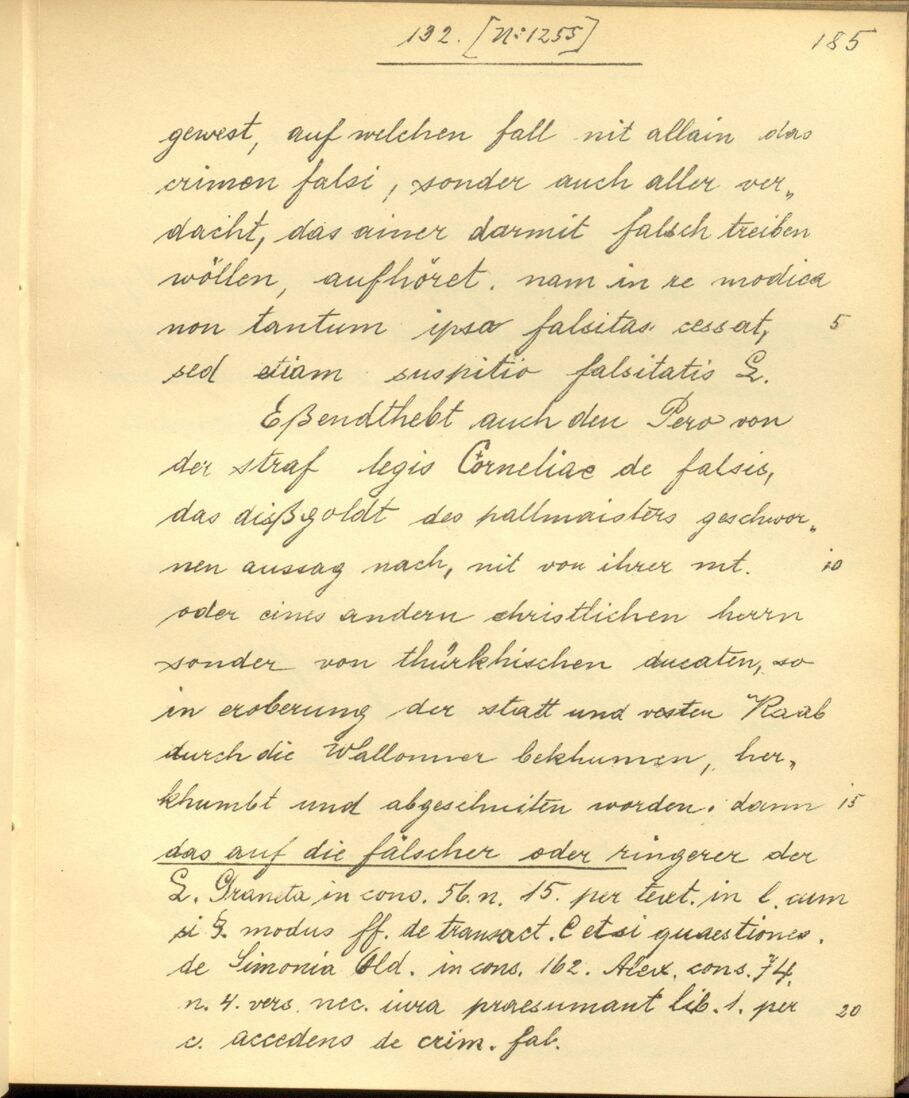 192. [N: 1255]
185
gewest, auf welchen fall nit allain das
crimen falsi, sonder auch aller ver„
dacht, das ainer darmit falsch treiben
wöllen, aufhöret. nam in re modica
non tantum ipsa falsitas cessat, 5
sed etiam suspitio falsitatis L.
Eßendthebt auch den Pero von
der straf legis Corneliae de falsis,
das dißgoldt des pallmaisters geschwor„
nen aussag nach, nit von ihrer mt. 10
oder eines andern christlichen herrn
sonder von thürkhischen ducaten, so
in eroberung der statt und vesten Raab
durch die Wallonner bekhumen, her„
khumbt und abgeschniten worden. dann 15
das auf die fälscher oder ringerer der
L. Graneta in cons. 56. n. 15. per text. in l. cum
si §. modus ff. de transact. C et si quaestiones.
de Simonia Old. in cons. 162. Alex. cons. 74.
n. 4. vers. nec. iura praesumant lib. 1. per 20
c. accedens de crim. fal.